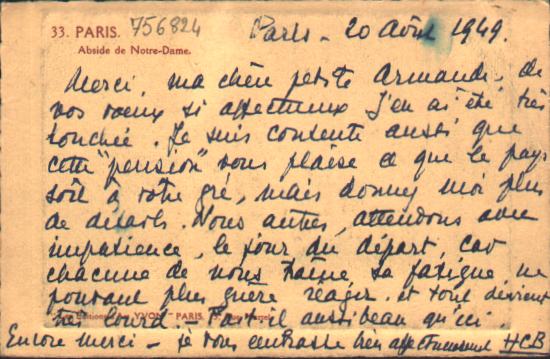 33. PARIS. 756824
Abside de Notre-Dame.
Paris - 20 Août 1949.
Merci, ma chère petite Armande, de
vos vœux si affectueux j'en ai été très
touchée. Je suis contente aussi que
cette "pension" vous plaise et que le pays
soit à votre gré, mais donnez moi plus
de détails. Nous autres, attendons avec
impatience, le jour du départ, car
chacune de nous traîne sa fatigue ne
pouvant plus guère réagir. et tout devient
très lourd. Fait-il aussi beau qu'ici
YVON - PARIS.
Encore merci - je vous embrasse très affectueusement HCB